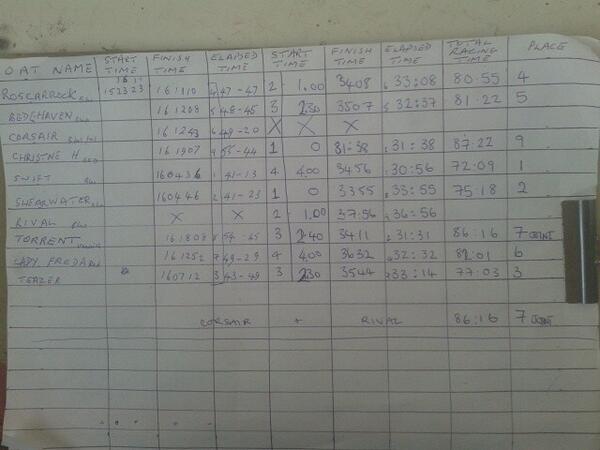 OAT NAME START TIME FINISH TIME ELAPSED TIME START TIME FINISH TIME ELAPSED TIME TOTAL RACING TIME PLACE
ROSCARROCK 152323 161110 47-47 2 1.00 3408 33:08 80.55 4
BEDGHAVEN 161208 48-45 3 2.30 3507 32:37 81.22 5
CORSAIR 161243 49-20 X X X
CHRISTNE H 161907 55-44 1 0 31-38 31:38 87:22 9
SWIFT 160436 1 41-13 4 4.00 3456 30:56 72:09 1
SHEARWATER 160446 2 41-23 1 0 3355 33:55 75:18 2
RIVAL X X 2 1.00 37:56 36:56
TORRENT 3 2.40 3411 31:31 86:16 7 JOINT
LADY FREDA 161252 7 49-29 4 4.00 3632 32:32 82:01 6
TEAZER 160712 3 43-49 3 2.30 3544 33:14 77:03 3
CORSAIR + RIVAL 86:16 7 JOINT